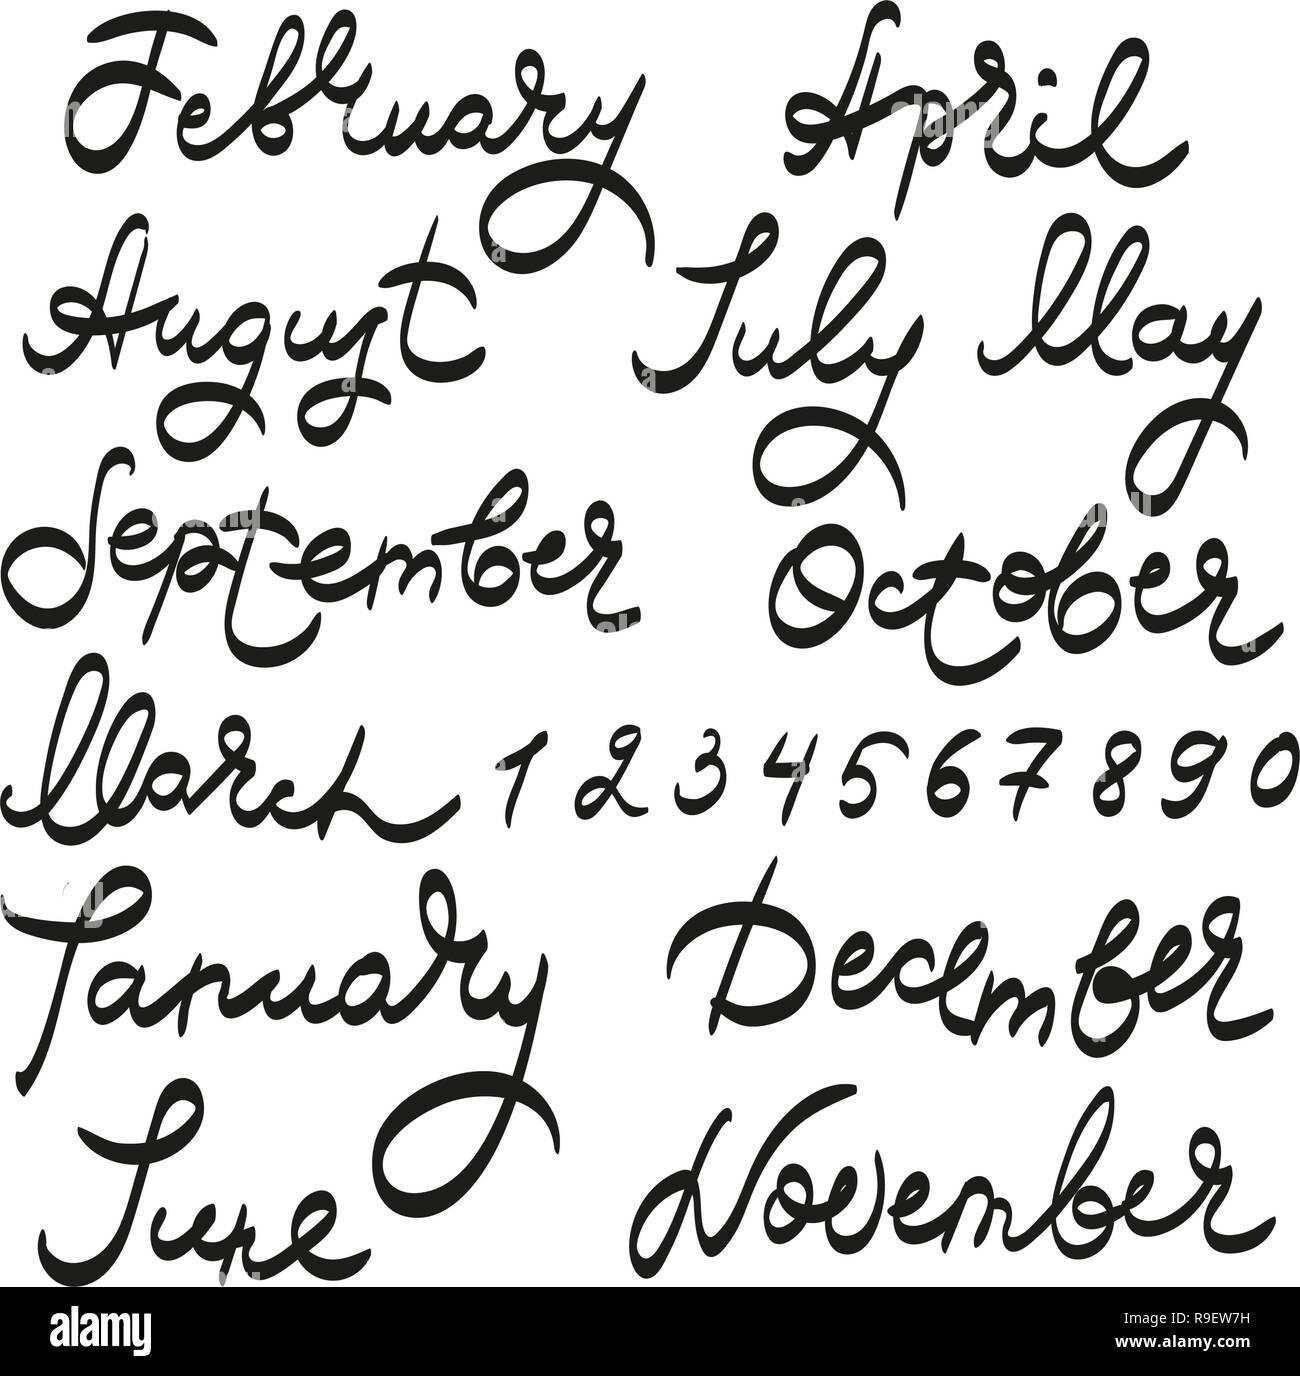 February April
August July May
September October
March 1 2 3 4 5 6 7 8 9 0
January December
June November
alamy
Image ID: R9EW7H
www.alamy.com